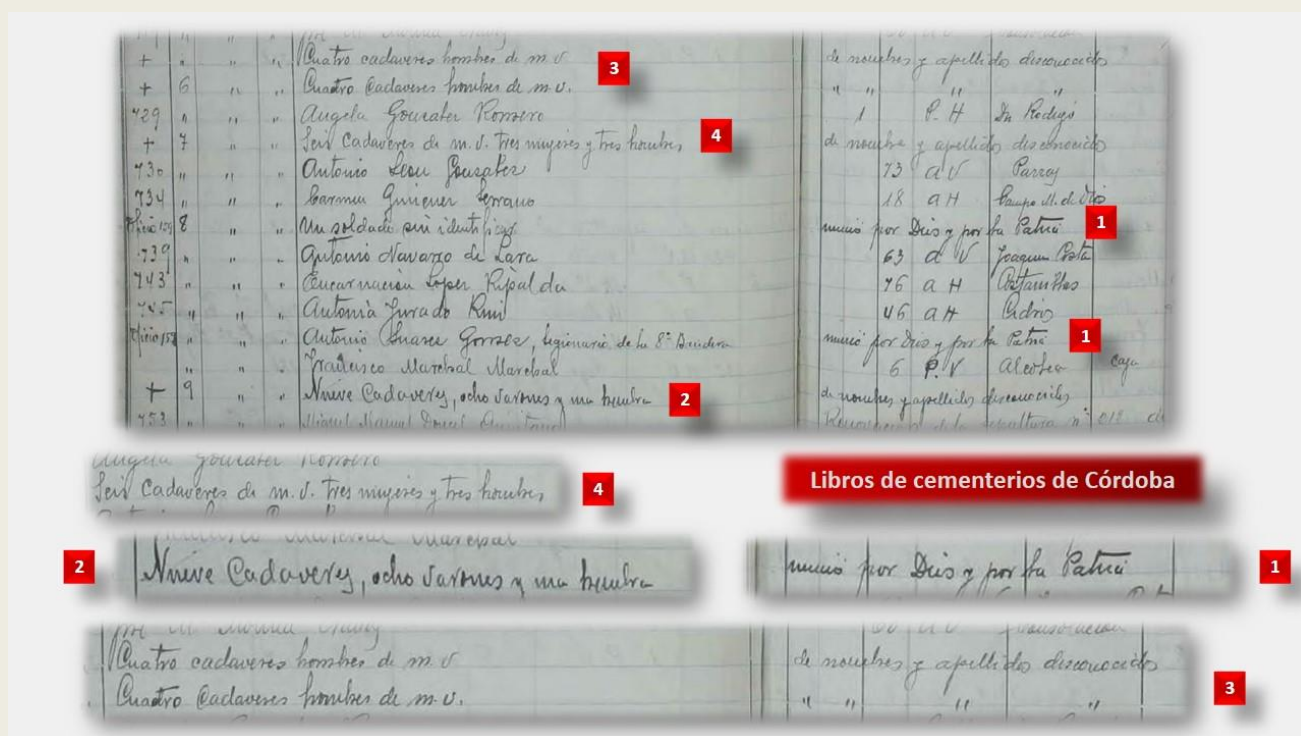 + " " " Cuatro cadaveres hombres de m. v de nombres y apellidos desconocidos
3
+ 6 " " Cuatro Cadaveres hombres de m. v. " " " "
729 " " " Angela Gonzalez Romero 1 P. H Dn Rodrigo
+ 7 " " Seis Cadaveres de m. v. tres mujeres y tres hombres de nombre y apellidos desconocidos
4
730 " " " Antonio Leon Gonzalez 73 a V Parras
734 " " " Carmen Gimenez Serrano 18 a H Campo M. de Dios
8 " " Un soldado sin identificar murió por Dios y por la Patria
1
739 " " " Antonio Navarro de Lara 63 a V Joaquin Costa
743 " " " Encarnacion Lopez Ripalda 76 a H Costanillas
745 " " " Antonia Jurado Ruiz 46 a H Cidros
" " " Antonio Suarez Gomez, legionario de la 8ª Bandera murió por Dios y por la Patria
1
" " Francisco Marchal Marchal 6 P. V Alcolea Caja
+ 9 " " Nueve Cadaveres, ocho varones y una hembra de nombres y apellidos desconocidos
2
753 " " Miguel
Angela Gonzalez Romero
Seis Cadaveres de m. v. tres mujeres y tres hombres
4
Libros de cementerios de Córdoba
Francisco Marchal Marchal
2
Nueve Cadaveres, ocho varones y una hembra
murió por Dios y por la Patria
1
Cuatro cadaveres hombres de m. v de nombres y apellidos desconocidos
Cuatro Cadaveres hombres de m. v. " " " "
3